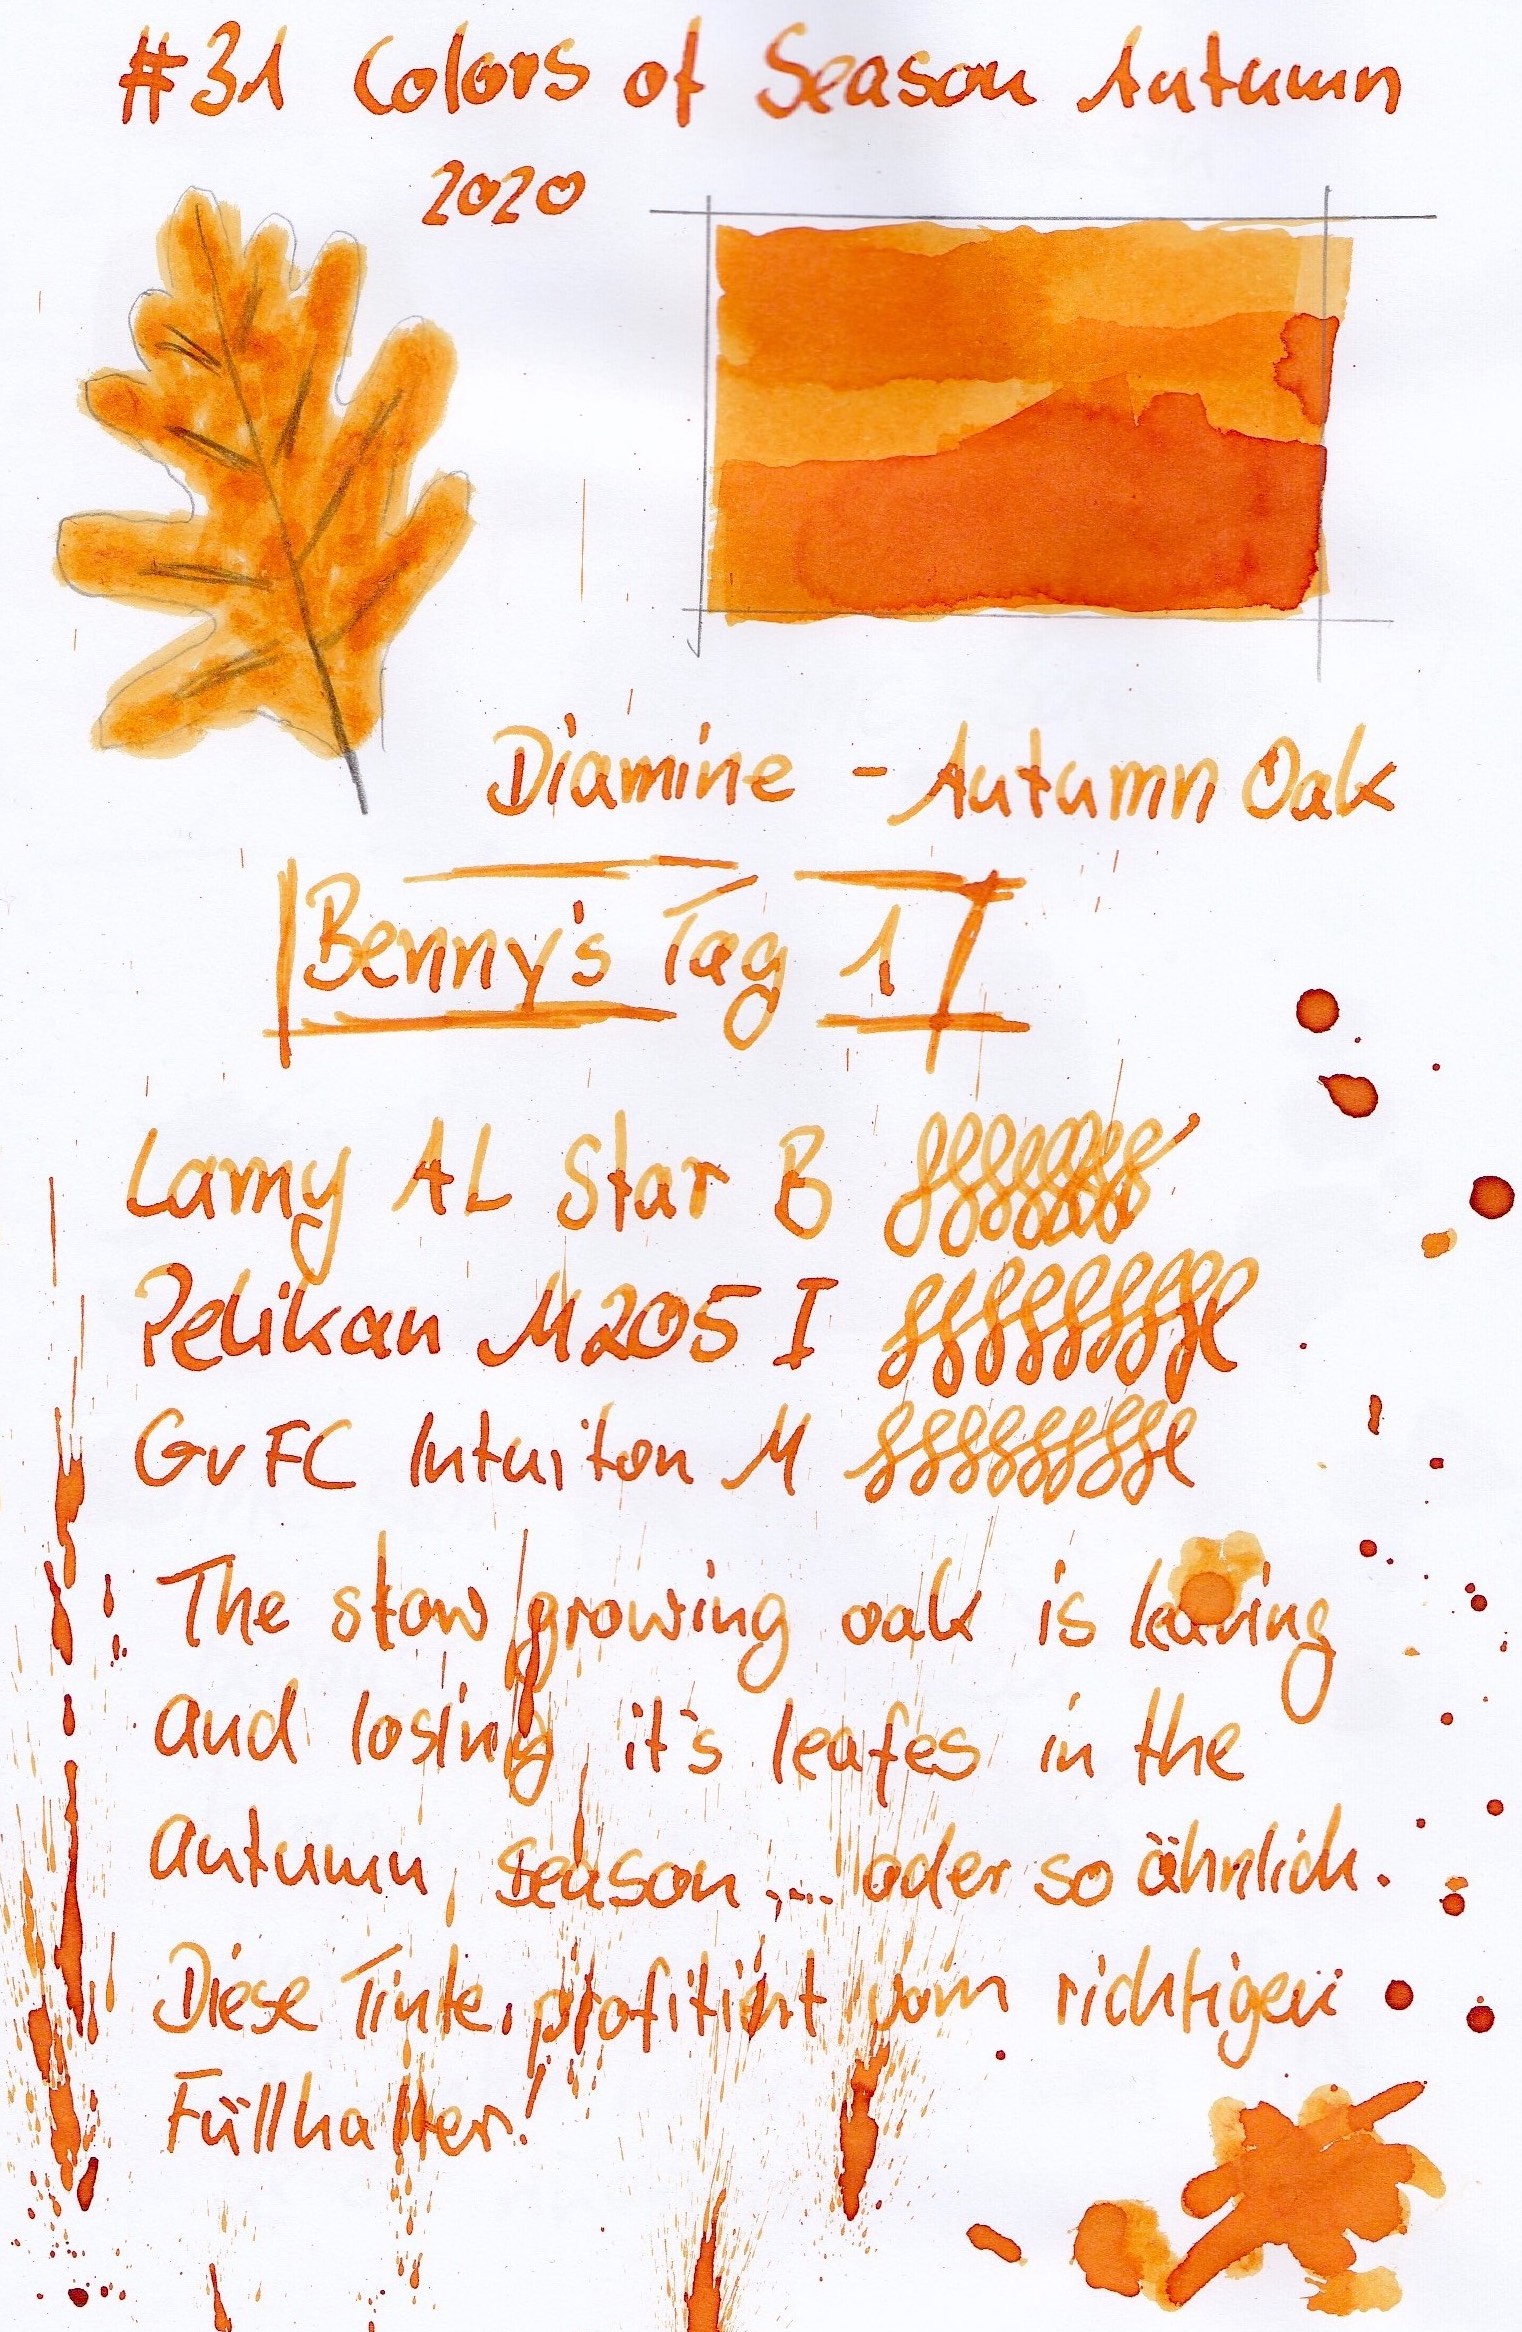 #31 Colors of Season Autumn
2020
Diamine - Autumn Oak
Benny's Tag 1
Lamy AL Star B
Pelikan M205 I
GvFC Intuiton M
The slow growing oak is leaving
and losing it's leafes in the
autumn season,... oder so ähnlich.
Diese Tinte profitiert vom richtigen
Füllhalter!